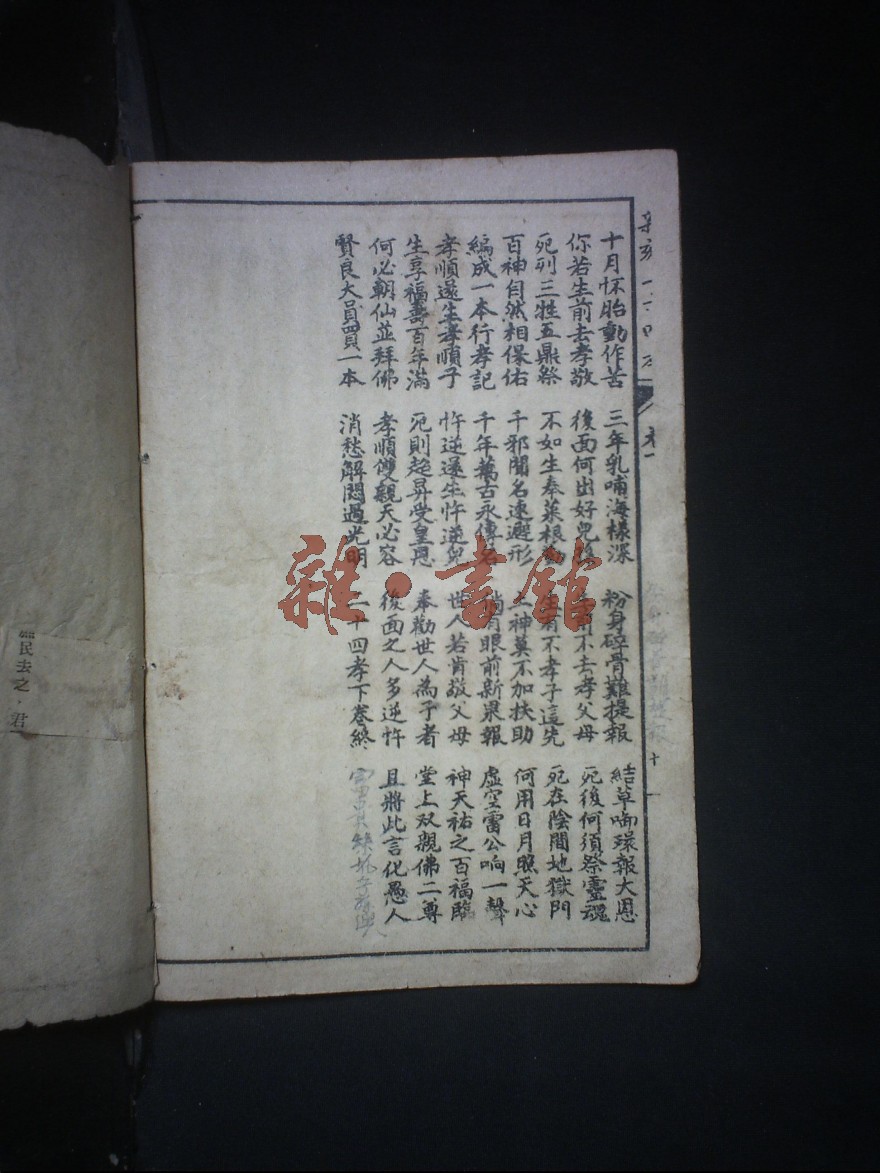 十月怀胎動作苦 三年乳哺海樣深 粉身碎骨難提報 結草啣環報大恩
你若生前去孝敬 後面何出好兒 不去孝父母 死後何須祭靈魂
死列三牲五鼎祭 不如生奉菜根 有不孝子這先 死在陰間地獄門
百神自然相保佑 千邪聞名速避形 神莫不加扶助 何用日月照天心
編成一本行孝記 千年萬古永傳名 倘有眼前新果報 虛空雷公响一聲
孝順還生孝順子 忤逆還生忤逆兒 世人若肯敬父母 神天祐之百福臨
生享福壽百年滿 死則超昇受皇恩 奉勸世人為子者 堂上双親佛二尊
何必朝仙並拜佛 孝順雙親天必容 後面之人多逆忤 且將此言化愚人
賢良大員買一本 消愁解悶過光明 二十四孝下卷終
十
雜·書館
民去之·君